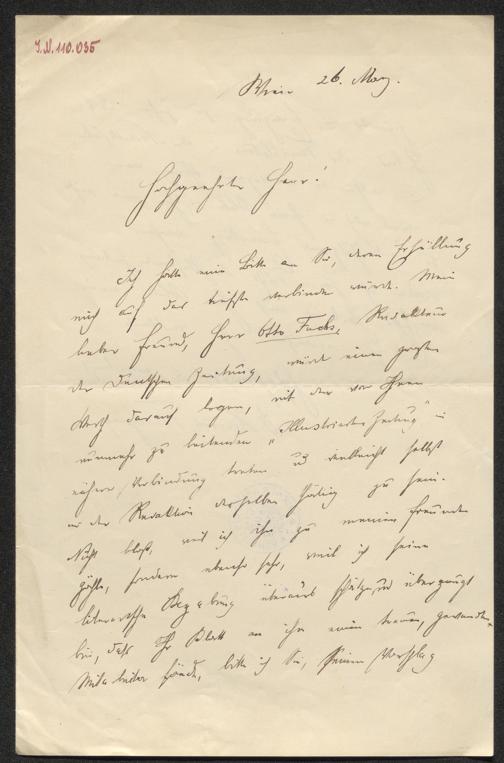 I.N. 110.035
Wien 26. März.
Hochgeehrter Herr!
Ich hätte eine Bitte an Sie, deren Erfüllung
mich auf das tiefste verbinden würde. Mein
lieber Freund, Herr Otto Fuchs, Redakteur
der Deutschen Zeitung, würde einen großen
Werth darauf legen, mit der von Ihnen
nunmehr zu leitenden „Illustrierten Zeitung" in
nähere Verbindung treten und vielleicht selbst
in der Redaktion derselben thätig zu sein.
Nicht bloß, weil ich ihn zu meinen Freunden
zähle, sondern ebenso sehr, weil ich seine
literarische Begabung überaus schätze, und überzeugt
bin, daß Ihr Blatt an ihm einen treuen, gewandten
Mitarbeiter fände, bitte ich Sie, seinen Vorschlag